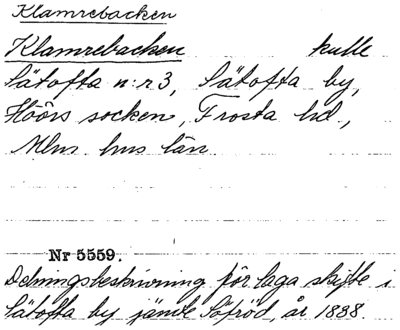 Klamrebacken
Klamrebacken kulle
Sätofta n:r 3, Sätofta by,
Höörs socken, Frosta hd,
Mlms hus län
Nr 5559.
Delningsbeskrivning för laga skifte i
Sätofta by jämte Säfröd, år 1838.